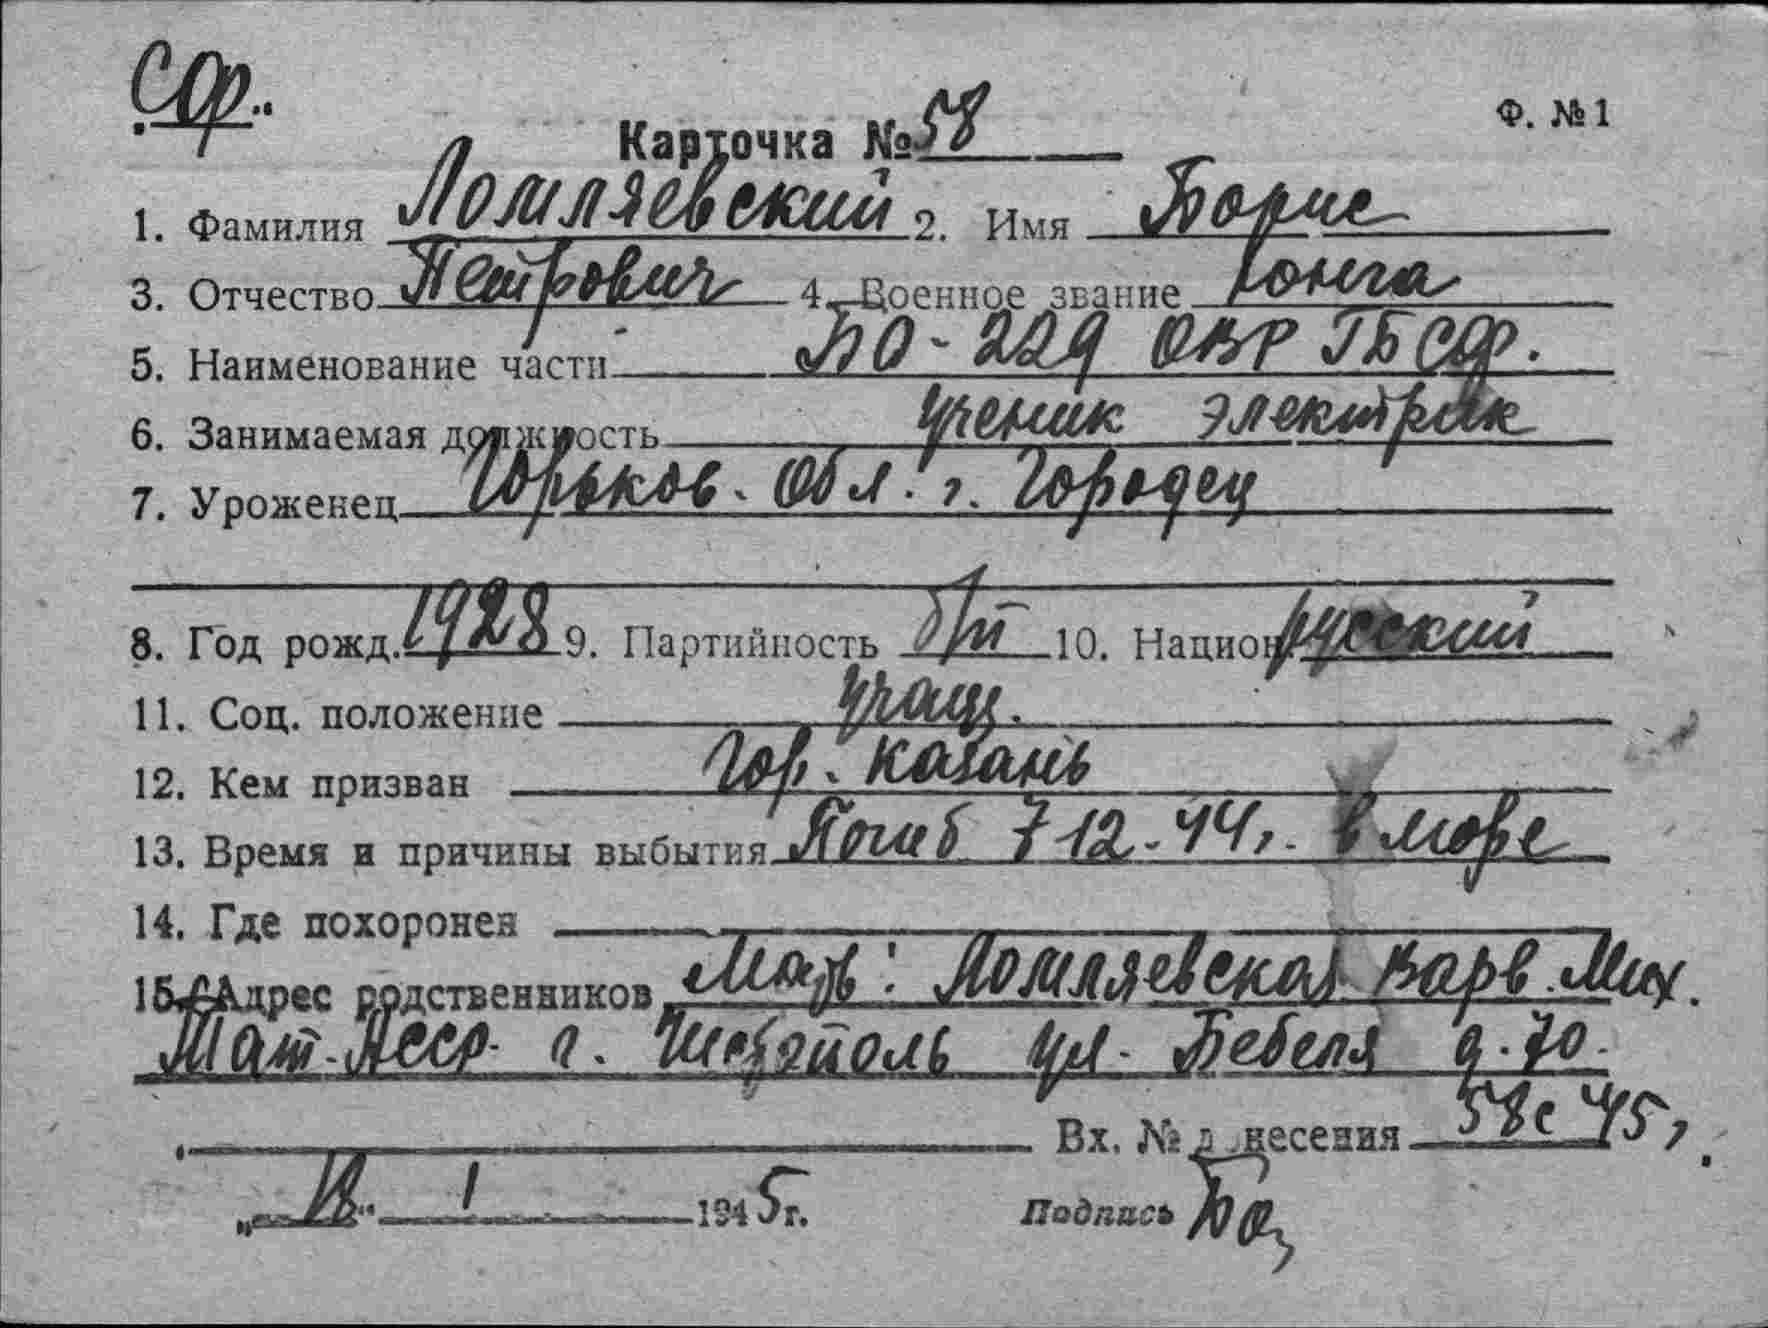 СФ.
Карточка № 58 Ф. № 1
1. Фамилия Ломляевский 2. Имя Борис
3. Отчество Петрович 4. Военное звание Юнга
5. Наименование части БО-229 ОВР ГБ СФ.
6. Занимаемая должность ученик электрик
7. Уроженец Горьков. обл. г. Городец
8. Год рожд. 1928 9. Партийность б/п 10. Национ. русский
11. Соц. положение учащ.
12. Кем призван Гор. Казань
13. Время и причины выбытия Погиб 7 12-44 г. в море
14. Где похоронен
15. Адрес родственников Мать: Ломляевская Варв. Мих.
Тат. АССР г. ул. Бебеля д. 70.
Вх. № донесения 58с 45 г.
" " 1 1945 г. Подпись